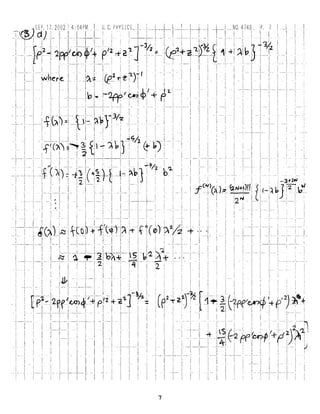 SEP. 17. 2002 4:04PM U C PHYSICS NO. 4760 P. 3
③ d)
[ρ² - 2ρρ'cosφ' + ρ'² + z²]^(-3/2) = (ρ² + z²)^(-3/2) { 1 + λb }^(-3/2)
where λ = (ρ² + z²)^(-1)
b = -2ρρ'cosφ' + ρ'²
f(λ) = {1 - λb}^(-3/2)
f'(λ) = -3/2 {1 - λb}^(-5/2) (+b)
f''(λ) = +3/2 (+5/2) {1 - λb}^(-7/2) b²
f^(N)(λ) = (2N+1)!!/2^N {1 - λb}^(-(3+2N)/2) b^N
f(λ) ≈ f(0) + f'(0) λ + f''(0) λ²/2 + ...
≈ 1 - 3/2 bλ + 15/4 b² λ²/2 + ...
⇓
[ρ² - 2ρρ'cosφ' + ρ'² + z²]^(-3/2) = (ρ² + z²)^(-3/2) [1 - 3/2 (-2ρρ'cosφ' + ρ'²) λ +
+ 15/4 (-2ρρ'cosφ' + ρ'²)² λ²/2]
7